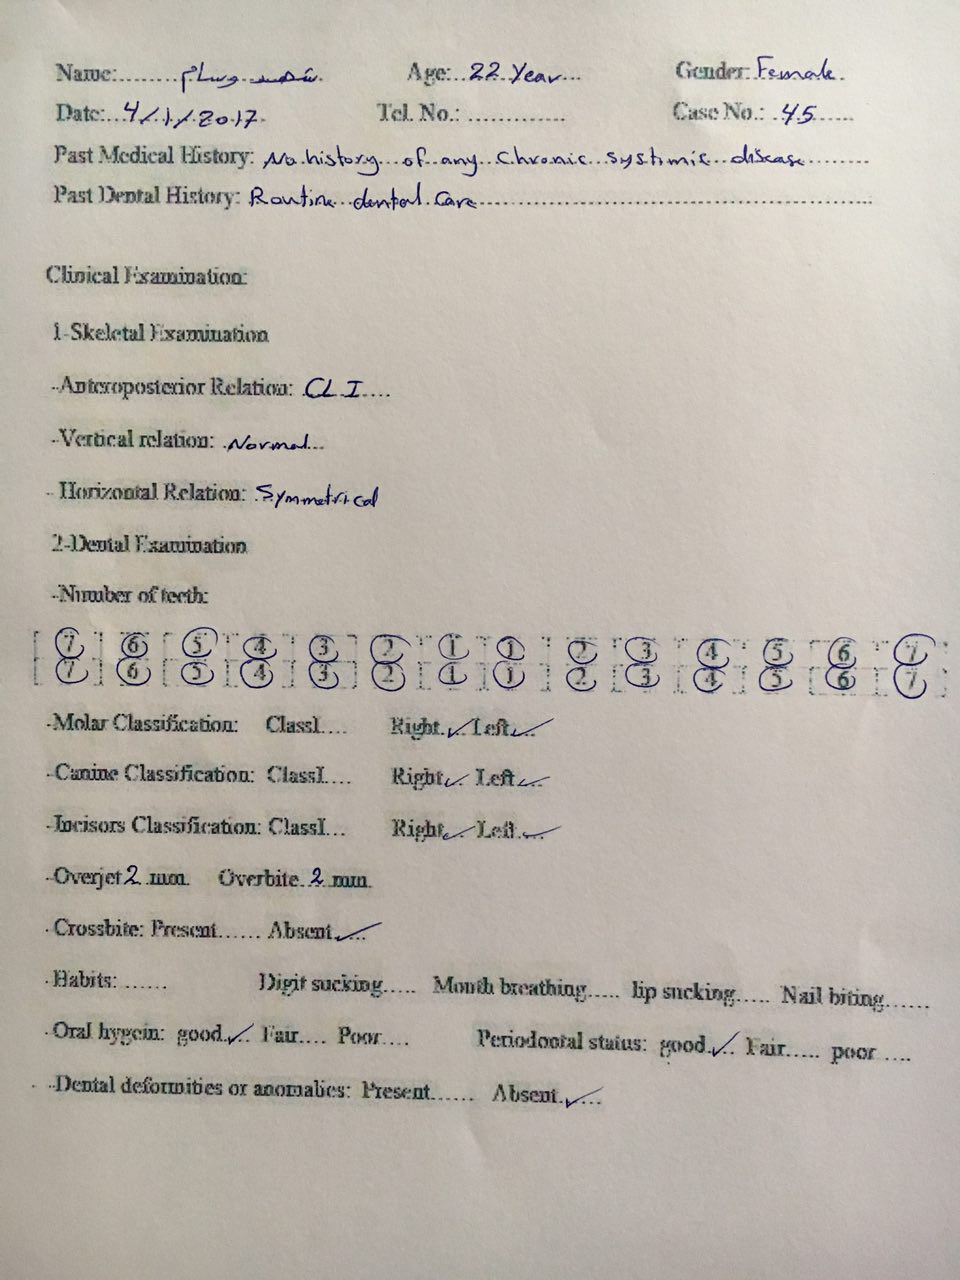 Name:........ شهد وسام Age:..22 Year... Gender: Female.
Date:...4/1/2017. Tel. No.: ............. Case No.: .45......
Past Medical History: No history of any chronic systimic disease.........
Past Dental History: Routine dental care..................................................
Clinical Examination:
1-Skeletal Examination
-Anteroposterior Relation: CL I....
-Vertical relation: Normal...
- Horizontal Relation: Symmetrical
2-Dental Examination
-Number of teeth:
7 6 5 4 3 2 1 1 2 3 4 5 6 7
7 6 5 4 3 2 1 1 2 3 4 5 6 7
-Molar Classification: ClassI.... Right ✓ Left ✓
-Canine Classification: ClassI.... Right ✓ Left ✓
-Incisors Classification: ClassI... Right ✓ Left ✓
-Overjet 2 mm. Overbite. 2 mm.
- Crossbite: Present...... Absent ✓
- Habits: ...... Digit sucking..... Mouth breathing..... lip sucking..... Nail biting......
- Oral hygein: good ✓ Fair.... Poor.... Periodontal status: good ✓ Fair..... poor ....
- -Dental deformities or anomalies: Present...... Absent ✓